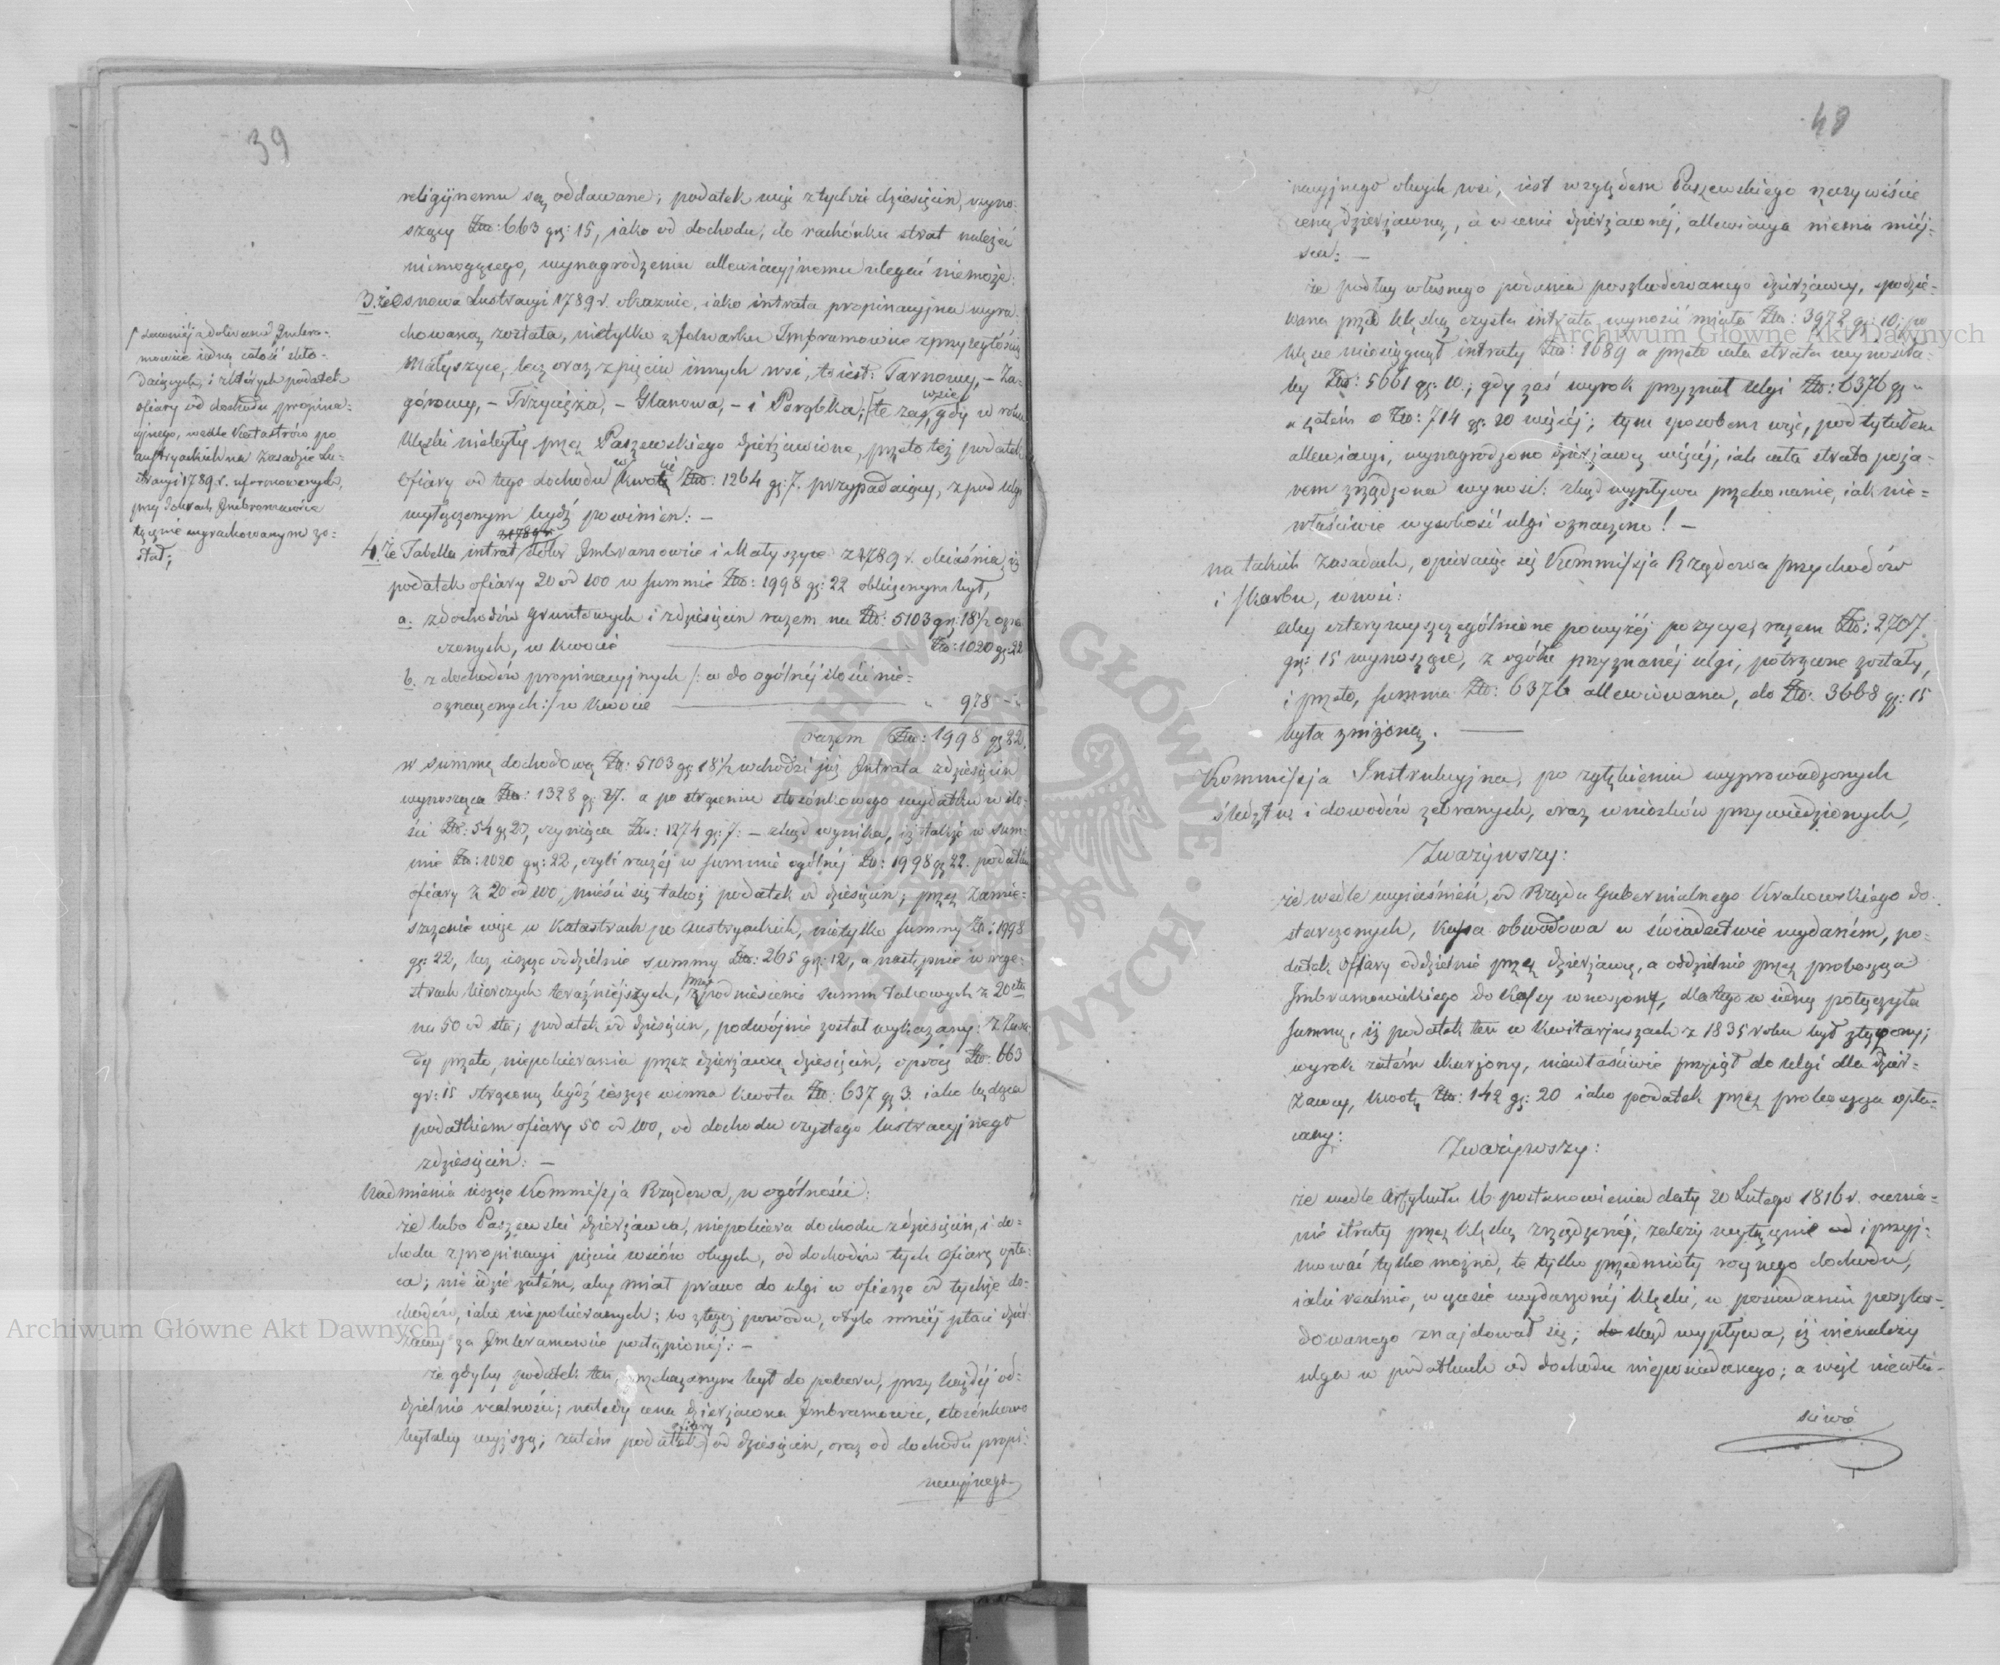 39
religijnemu są oddawane; podatek więc z tychże dziesięcin, wyno-
szący Złp: 663 gr: 15, jako od dochodu, do rachunku strat należeć
niemogącego, wynagrodzeniu allewiacyjnemu ulegać niemoże:
3. że Osnowa Lustracyi 1789 r. okazuje, jako intrata propinacyjna wyra-
chowaną została, nietylko z folwarku Imbramowic z przyległością
Małyszyce, lecz oraz z pięciu innych wsi, to iest: Tarnowy, – Za-
górowy, – Trzyciąża, – Glanowa, – i Porąbka; te zaś wsie, gdy w roku
klęski niebyły przez Paszewskiego dzierżawione, przeto też podatek
Ofiary od tego dochodu w kwocie Złp: 1264 gr: 7. przypadający, z pod ulgi
wyłączonym bydź powinien: –
/ dawniej z dobrami Imbra-
mowic iedną całość skła-
daiących, i których podatek
ofiary od dochodu propina-
cyjnego, wedle Katastrów po
austryackich na zasadzie Lu-
stracyi 1789 r. uformowanych,
przy dobrach Imbramowic
łącznie wyrachowanym zo-
stał;
4. Że Tabella intrat dóbr Imbramowic i Małyszyce z 1789 r. obiaśnia, iż
podatek ofiary 20 od 100 w summie Złp: 1998 gr: 22 obliczonym był,
a. z dochodów gruntowych i z dziesięcin razem na Złp: 5103 gr: 18½ ozna-
czonych, w kwocie Złp: 1020 gr: 22
b. z dochodów propinacyjnych /: a do ogólnéj ilości nie-
oznaczonych :/ w kwocie " 978 – "
razem Złp: 1998 gr 22.
w summę dochodową Złp: 5103 gr: 18½ wchodzi już Intrata z dziesięcin
wynosząca Złp: 1328 gr: 27. a po strąceniu stosónkowego wydatku w ilo-
ści Złp: 54 gr 20, czyniąca Złp: 1274 gr: 7: – zkąd wynika, iż także w sum-
mie Złp: 1020 gr: 22, czyli raczéj w summie ogólnéj Złp: 1998 gr 22. podatku
ofiary z 20 od 100, mieści się takoż podatek od dziesięcin; przez zamie-
szczenie więc w Katastrach po Austryackich, nietylko summy Złp: 1998
gr: 22, lecz ieszcze oddzielnie summy Złp: 265 gr: 12, a następnie w reje-
strach bierczych teraźniejszych, przez podniesienie summ takowych z 20
na 50 od sta; podatek od dziesięcin, podwójnie został wykazany: z
przeto, niepobierania przez dzierżawcę dziesięcin, oprócz Złp: 663
gr: 15 strąconą bydź ieszcze winna kwota Złp: 637 gr 3. jako będąca
podatkiem ofiary 50 od 100, od dochodu czystego lustracyjnego
z dziesięcin: –
Nadmienia ieszcze Kommissja Rządowa, w ogólności:
że lubo Paszewski dzierżawca, niepobiera dochodu z dziesięcin, i do-
chodu z propinacyi pięciu wsiów obcych, od dochodów tych Ofiarę opła-
ca; nie idzie zatém, aby miał prawo do ulgi w ofierze od tychże do-
chodów, jako niepobieranych; bo z tegoż powodu, o tyle mniéj płaci dzier-
żawy za Imbramowic postąpionéj: –
że gdyby podatek ten, przekazanym był do poboru, przy każdéj od-
dzielnie realności; natedy cena dzierżawna Imbramowic, stosónkowo
byłaby wyższą; zatém podatek ofiary od dziesięcin, oraz od dochodu propi-
nacyjnego
40
nacyjnego obcych wsi, iest względem Paszewskiego rzeczywiście
ceną dzierżawną, a w cenie dzierżawnéj, allewiacya niema miej-
sca: –
że podług własnego podania poszkodowanego dzierżawcy, spodzie-
wana przed klęską czysta intrata wynosić miała Złp: 3972 gr: 10; po
klęsce nieosiągnął intraty Złp: 1689 a przeto cała strata wynosiła-
by Złp: 5661 gr: 10; gdy zaś wyrok przyznał ulgi Złp: 6376 gr "
a zatém o Złp: 714 gr: 20 więcéj; tym sposobem więc, pod tytułem
allewiacyi, wynagrodzono dzierżawcę więcéj, iak cała strata poża-
rem zrządzona wynosi: zkąd wypływa przekonanie, iak nie-
właściwie wysokość ulgi oznaczono! –
na takich zasadach, opieraiąc się Kommissja Rządowa Przychodów
i Skarbu, wnosi:
aby cztery wyszczególnione powyżéj pozycye, razem Złp: 2707
gr: 15 wynoszące, z ogółu przyznanéj ulgi, potrącone zostały,
i przeto, summa Złp: 6376 allewiowana, do Złp: 3668 gr: 15
była zniżoną. –
Kommissja Instrukcyjna, po zgłębieniu wyprowadzonych
śledztw, i dowodów zebranych, oraz wniosków przywiedzionych,
Zważywszy:
że wedle wyjaśnień, od Rządu Gubernialnego Krakowskiego do-
starczonych, Kassa obwodowa w świadectwie wydaném, po-
datek ofiary oddzielnie przez dzierżawcę, a oddzielnie przez proboszcza
Imbramowickiego do Kassy wnoszony, dla tego w iedną połączyła
summę, iż podatek ten w Kwitarjuszach z 1835 roku był złączony;
wyrok zatém skarżony, niewłaściwie przyiął do ulgi dla dzier-
żawcy, kwotę Złp: 142 gr: 20 iako podatek przez proboszcza opła-
cany:
Zważywszy:
że wedle Artykułu 16 postanowienia daty 20 Lutego 1816 r. ocenie-
nie straty przez klęskę zrządzonéj, zależy wyłącznie od i przyj-
mować tylko można, te tylko przedmioty rocznego dochodu,
iakie realnie, w czasie wydarzonéj klęski, w posiadaniu poszko-
dowanego znajdował się; zkąd wypływa, iż nienależy
ulga w podatkach od dochodu nieposiadanego; a więc niewła-
ściwo
Archiwum Główne Akt Dawnych
Archiwum Główne Akt Dawnych
ARCHIWUM GŁÓWNE AKT DAWNYCH